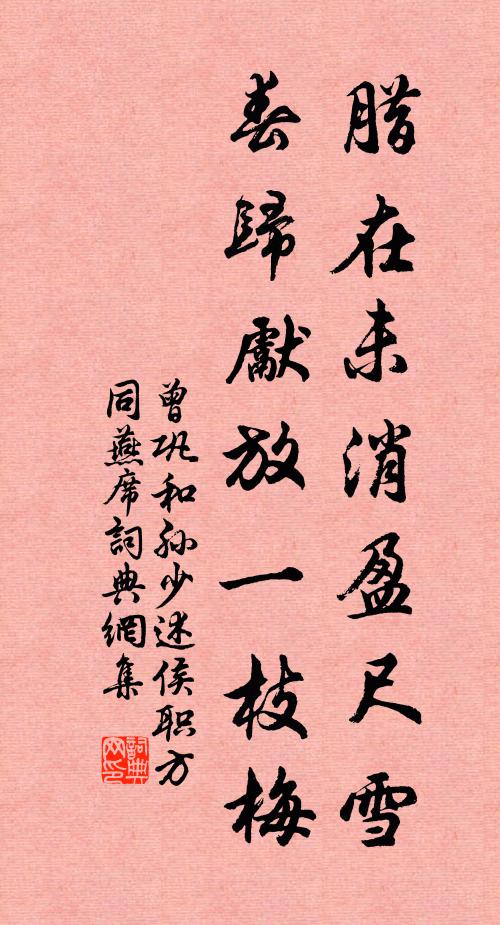 腊在未消盈尺雪
春歸獻放一枝梅
曾巩和孙少述侯职方
同燕席詞典網集
詞典
网印